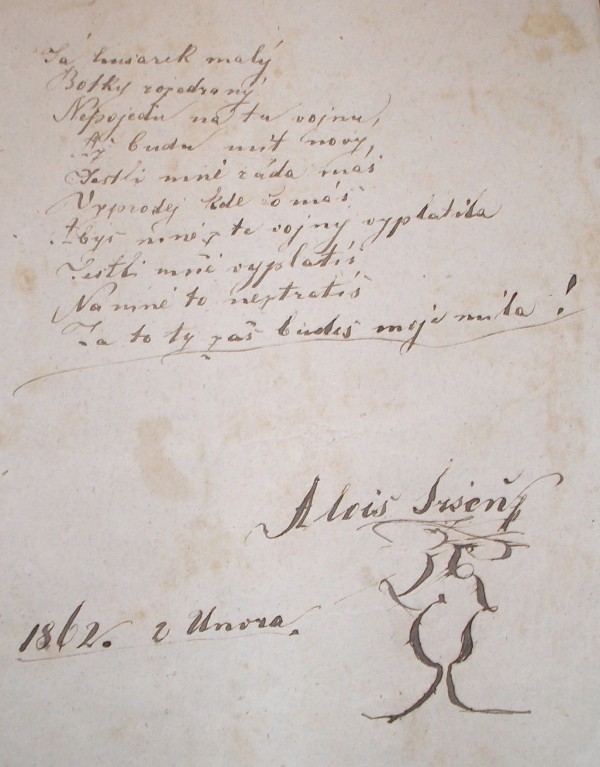 Já husarek malý
Botky rozedraný
Nepojedu na tu vojnu,
Až budu mít nový,
Jestli mně ráda maš
Vyprodej kde co máš
Abys mně z te vojny vyplatila
Jestli mně vyplatiš
Na mně to neztratiš
Za to ty zaš budeš moje mila!
Alois
1862. 2 Unora.